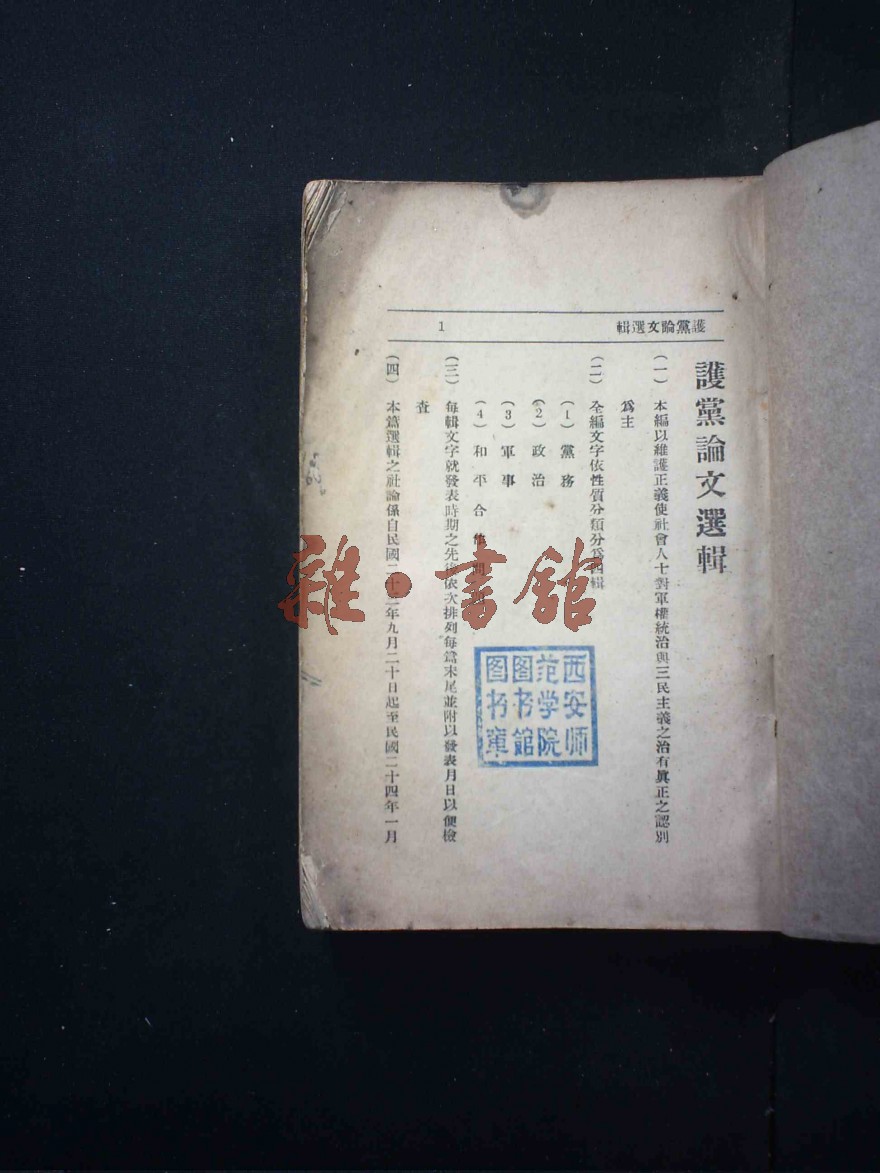 護黨論文選輯
1
護黨論文選輯
(一) 本編以維護正義使社會人士對軍權統治與三民主義之治有眞正之認別
爲主
(二) 全編文字依性質分類分爲四輯
(1) 黨務
(2) 政治
(3) 軍事
(4) 和平合作問題
(三) 每輯文字就發表時期之先後依次排列每篇末尾並附以發表月日以便檢
查
(四) 本篇選輯之社論係自民國二十三年九月二十日起至民國二十四年一月
雜·書館
西安师
范学院
图书館
图书章